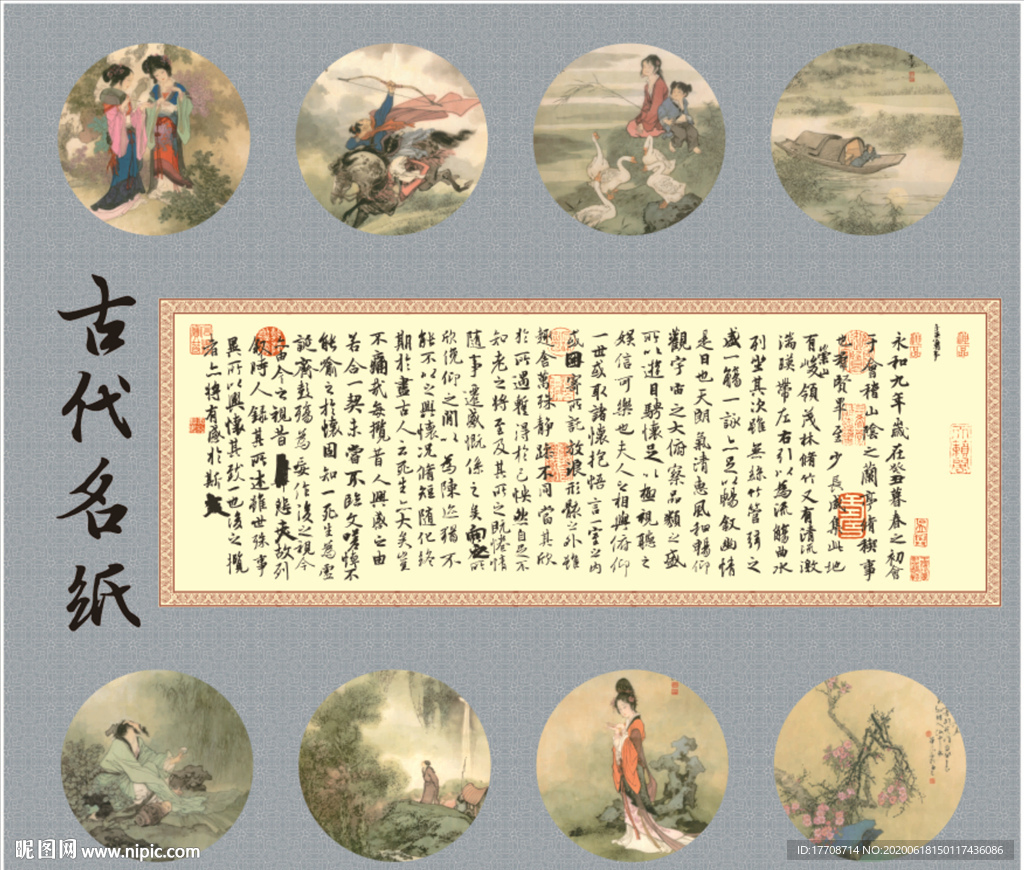 古代名纸
永和九年歲在癸丑暮春之初會
于會稽山陰之蘭亭脩稧事
也羣賢畢至少長咸集此地
有崇山峻領茂林脩竹又有清流激
湍暎帶左右引以為流觴曲水
列坐其次雖無絲竹管弦之
盛一觴一詠亦足以暢叙幽情
是日也天朗氣清惠風和暢仰
觀宇宙之大俯察品類之盛
所以遊目騁懷足以極視聽之
娛信可樂也夫人之相與俯仰
一世或取諸懷抱悟言一室之內
或因寄所託放浪形骸之外雖
趣舍萬殊靜躁不同當其欣
於所遇暫得於己怏然自足不
知老之將至及其所之既惓情
隨事遷感慨係之矣向之所
欣俛仰之閒以為陳迹猶不
能不以之興懷況脩短隨化終
期於盡古人云死生亦大矣豈
不痛哉每攬昔人興感之由
若合一契未嘗不臨文嗟悼不
能喻之於懷固知一死生為虛
誕齊彭殤為妄作後之視今
亦由今之視昔悲夫故列
叙時人錄其所述雖世殊事
異所以興懷其致一也後之攬
者亦將有感於斯文
昵图网 www.nipic.com
ID:17708714 NO:20200618150117436086